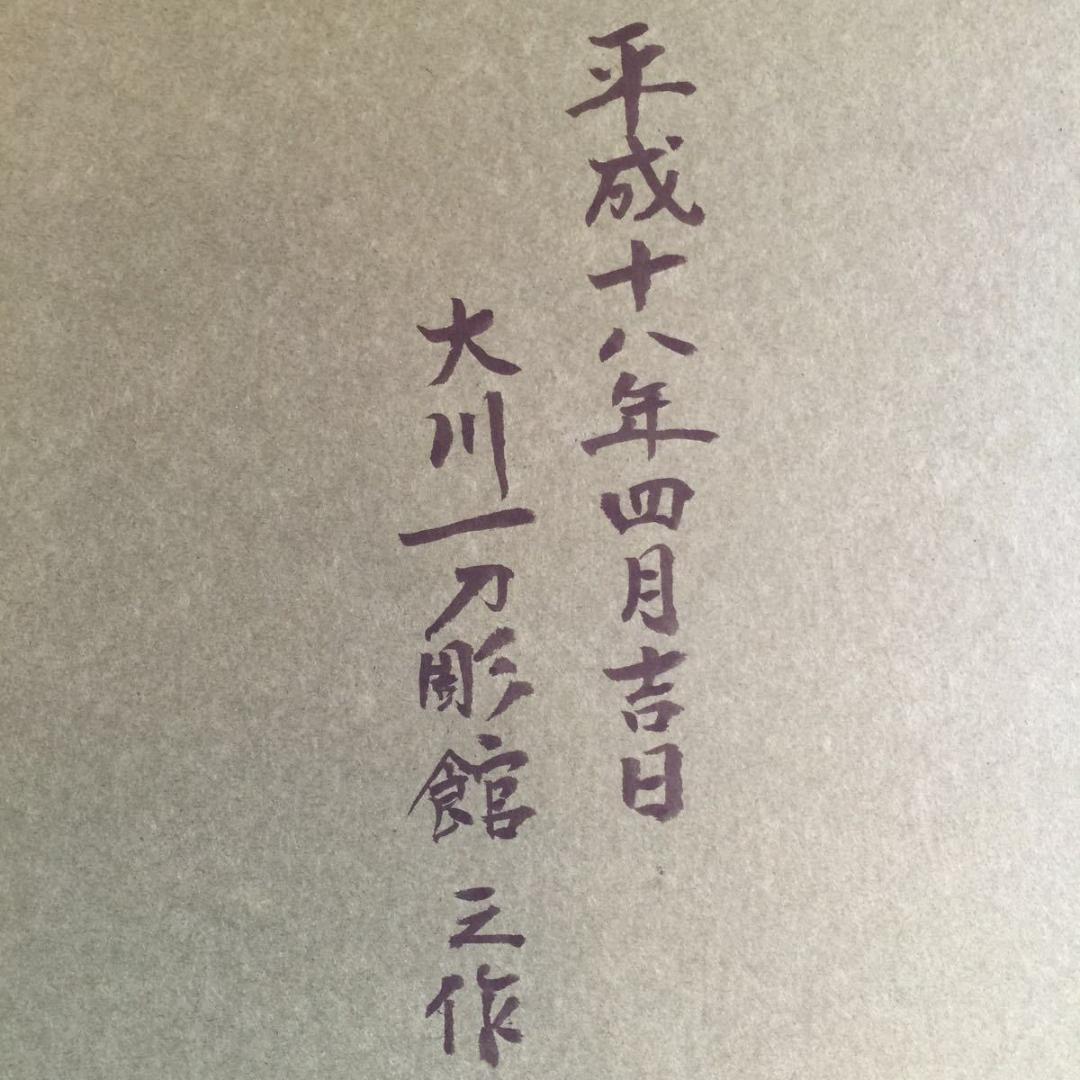 平成十八年四月吉日
大川一刀彫館 之作